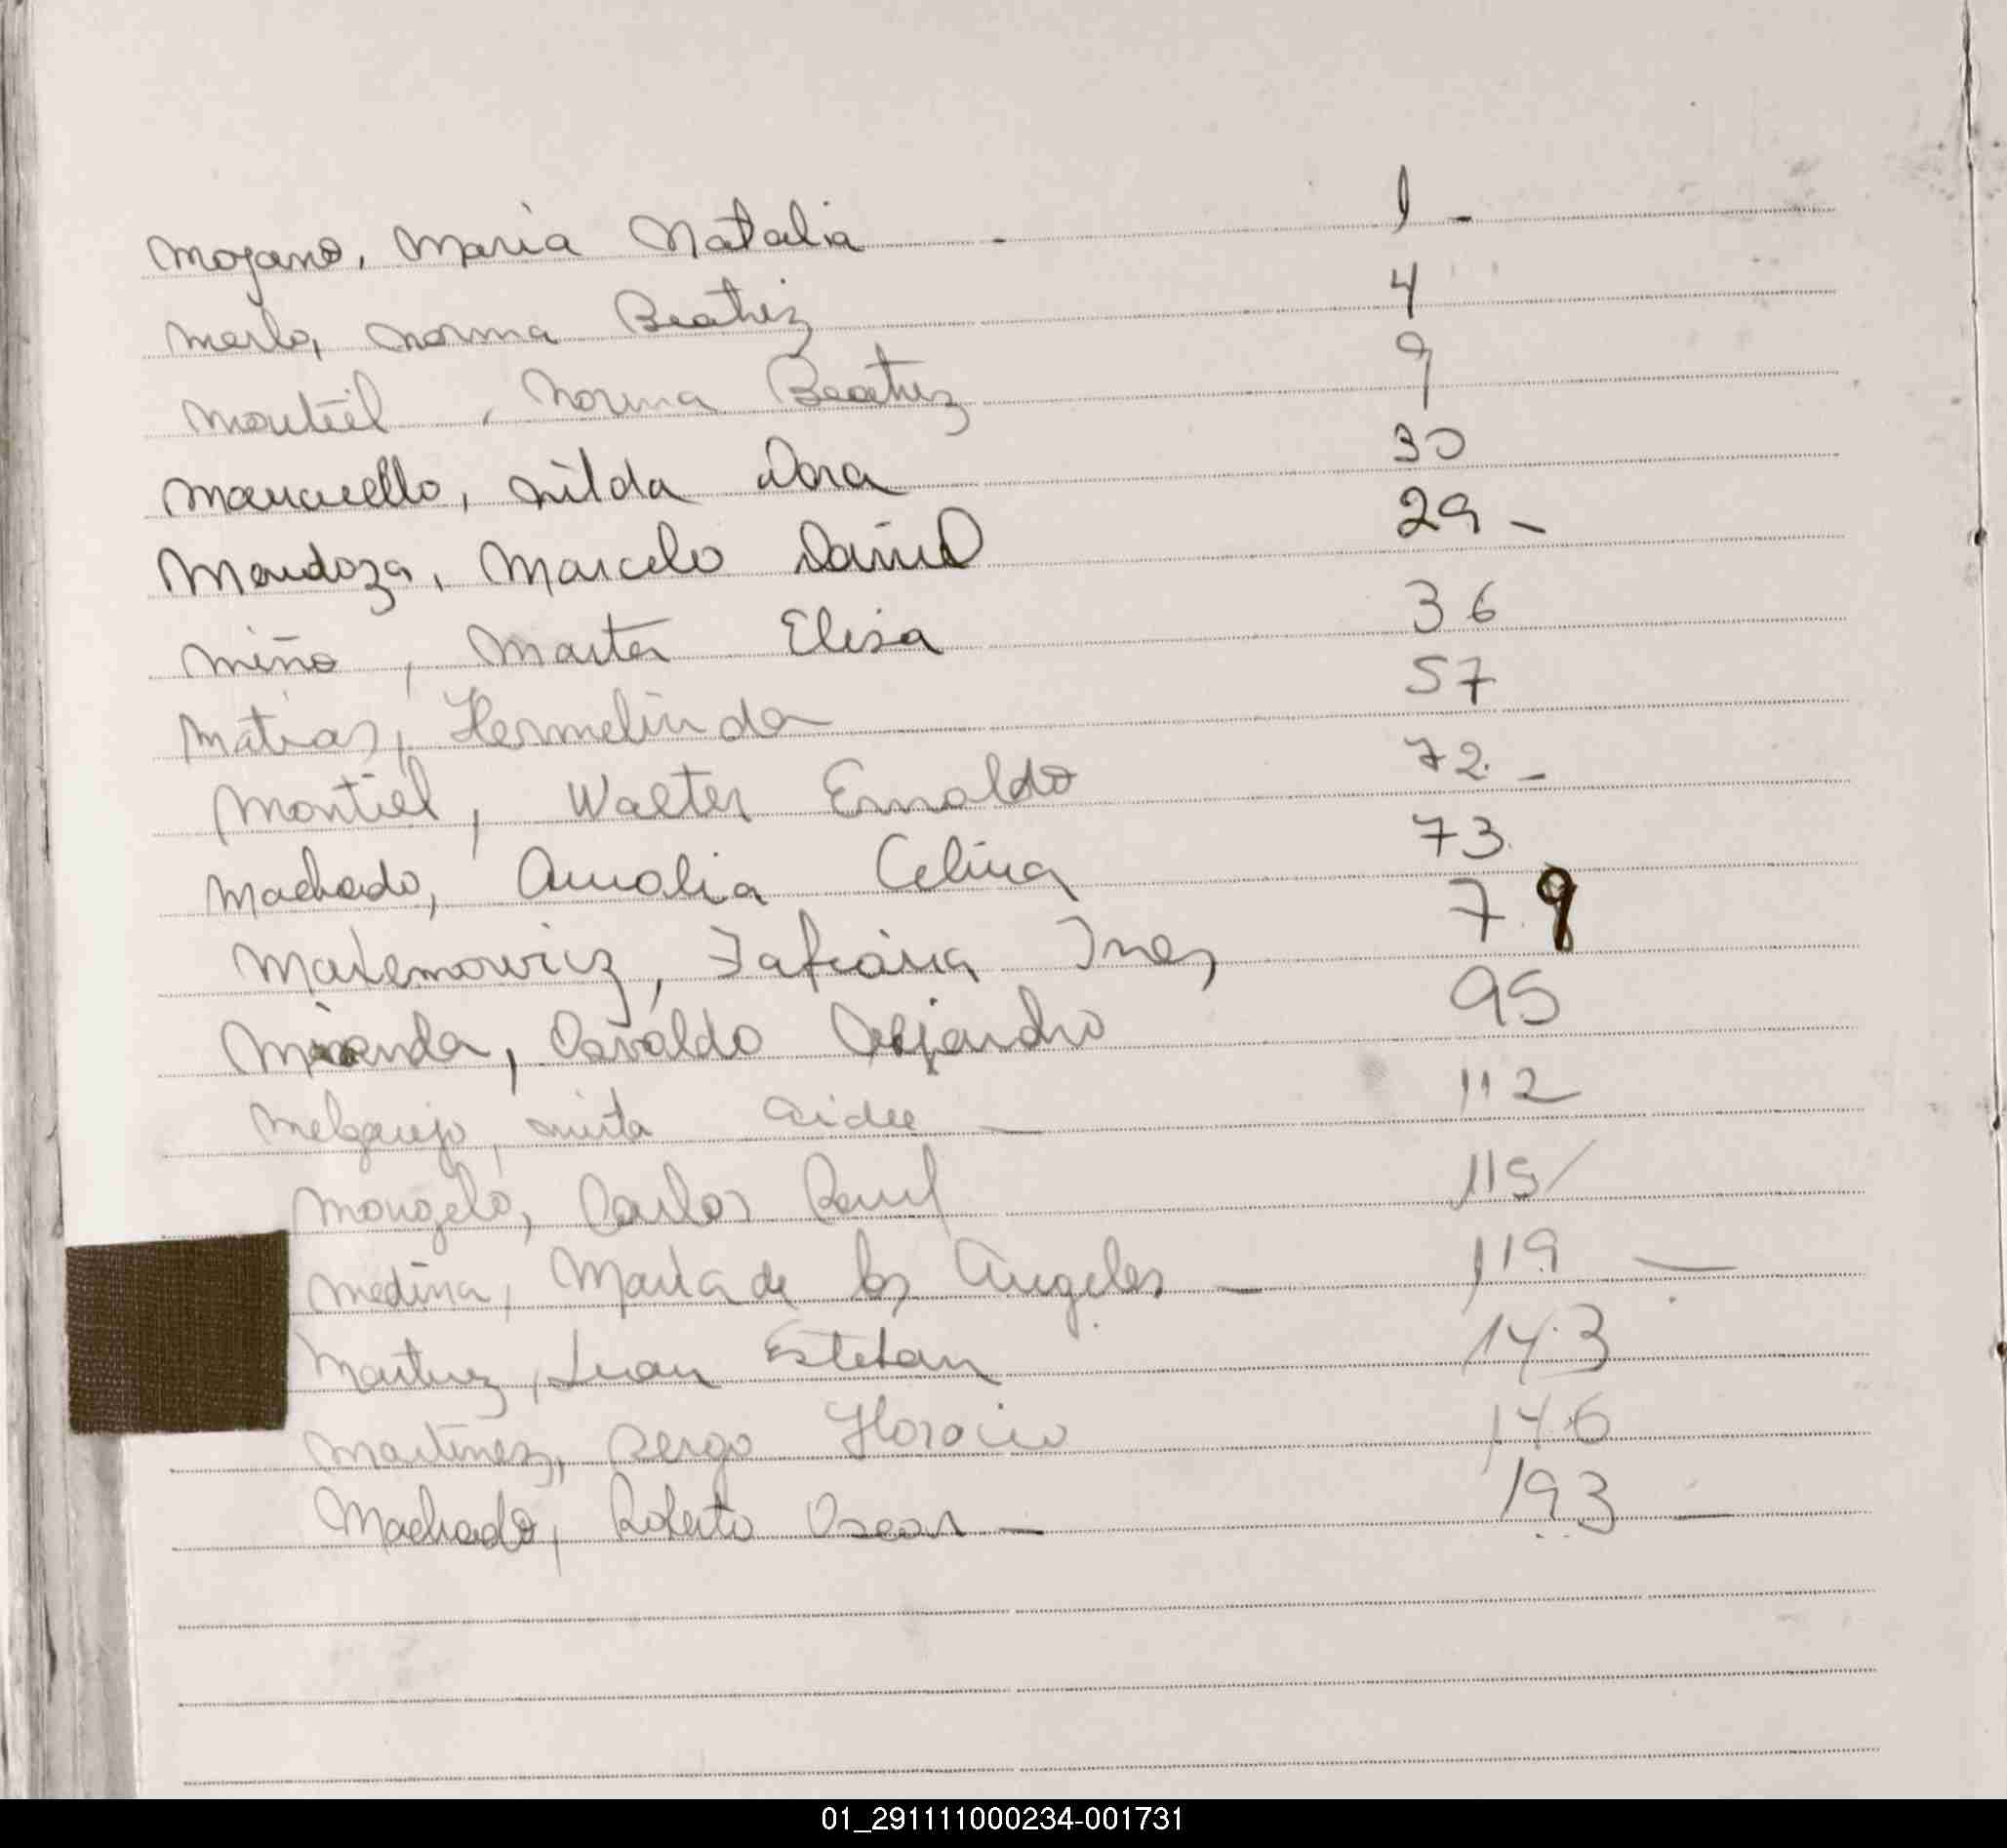 Moyano, Maria Natalia - 1 -
Merlo, Norma Beatriz 4
Montiel, Norma Beatriz 9
Mancuello, Nilda Dora 30
Mendoza, Marcelo Daniel 29 -
Miño, Marta Elisa 36
Matias, Hermelinda 57
Montiel, Walter Ernaldo 72. -
Machado, Amalia Celina 73.
Tatiana Ines 79
Miranda, Osvaldo Alejandro 95
Melgarejo, Mirta Aidee - 112
Mongelo, Carlos Raul 115/
Medina, Maria de los Angeles - 119 -
Martinez, Juan Esteban 143
Martinez, Sergo Horacio 146
Machado, Roberto Oscar - 193 -
01_291111000234-001731